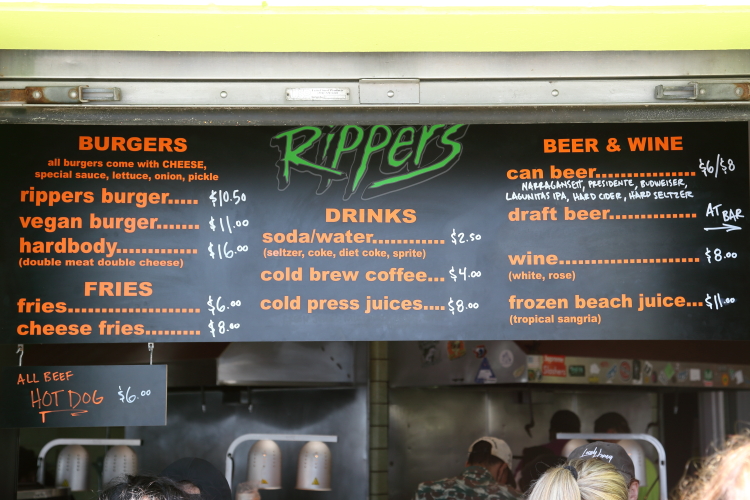 Rippers
BURGERS
all burgers come with CHEESE,
special sauce, lettuce, onion, pickle
rippers burger..... $10.50
vegan burger....... $11.00
hardbody............ $16.00
(double meat double cheese)
FRIES
fries..................... $6.00
cheese fries......... $8.00
ALL BEEF
HOT DOG $6.00
DRINKS
soda/water............ $2.50
(seltzer, coke, diet coke, sprite)
cold brew coffee... $4.00
cold press juices.... $8.00
BEER & WINE
can beer................ $6/$8
NARRAGANSETT, PRESIDENTE, BUDWEISER,
LAGUNITAS IPA, HARD CIDER, HARD SELTZER
draft beer.............. AT BAR
wine....................... $8.00
(white, rose)
frozen beach juice... $11.00
(tropical sangria)